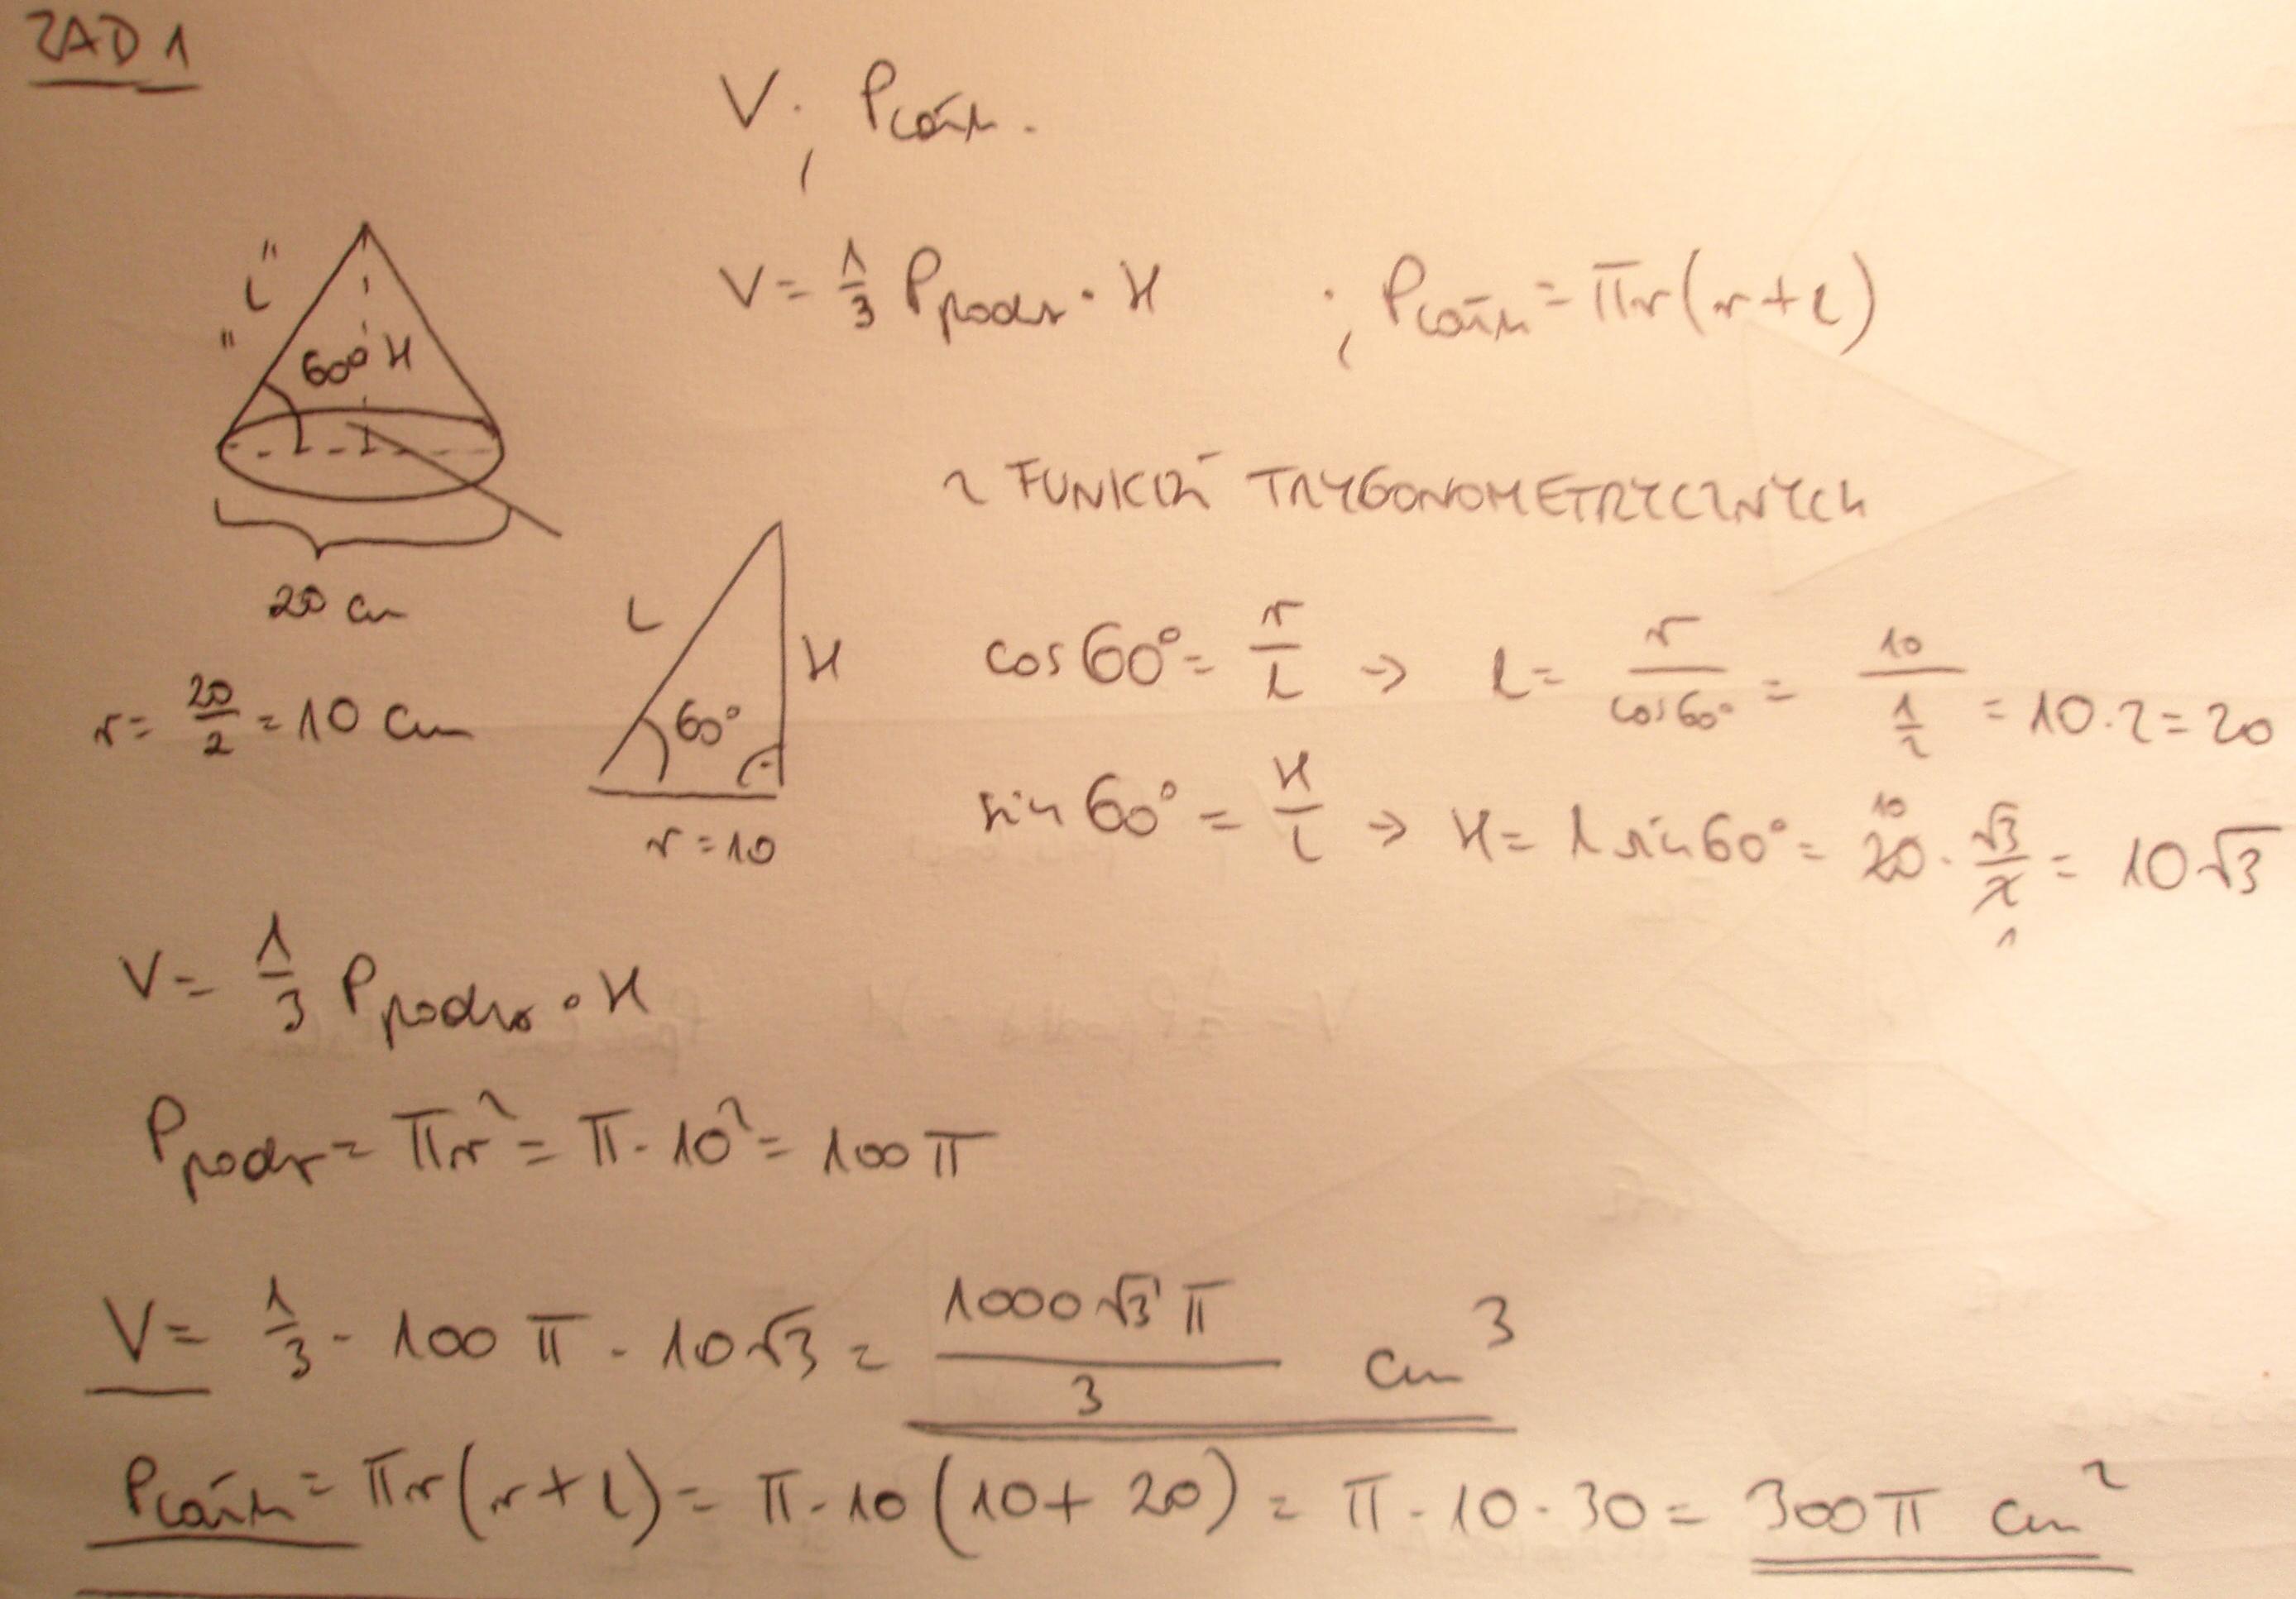 ZAD 1
V ; Pcałk.
V = 1/3 Ppodst · H ; Pcałk = πr(r+l)
"l"
60° H
20 cm
r = 20/2 = 10 cm
L
H
60°
r = 10
Z FUNKCJI TRYGONOMETRYCZNYCH
cos 60° = r/L → l = r/cos60° = 10/(1/2) = 10·2 = 20
sin 60° = H/L → H = l sin60° = 20 · √3/2 = 10√3
10
1
V = 1/3 Ppodst · H
Ppodst = πr² = π · 10² = 100 π
V = 1/3 · 100 π · 10√3 = 1000√3 π/3 cm³
Pcałk = πr(r+l) = π · 10 (10 + 20) = π · 10 · 30 = 300 π cm²